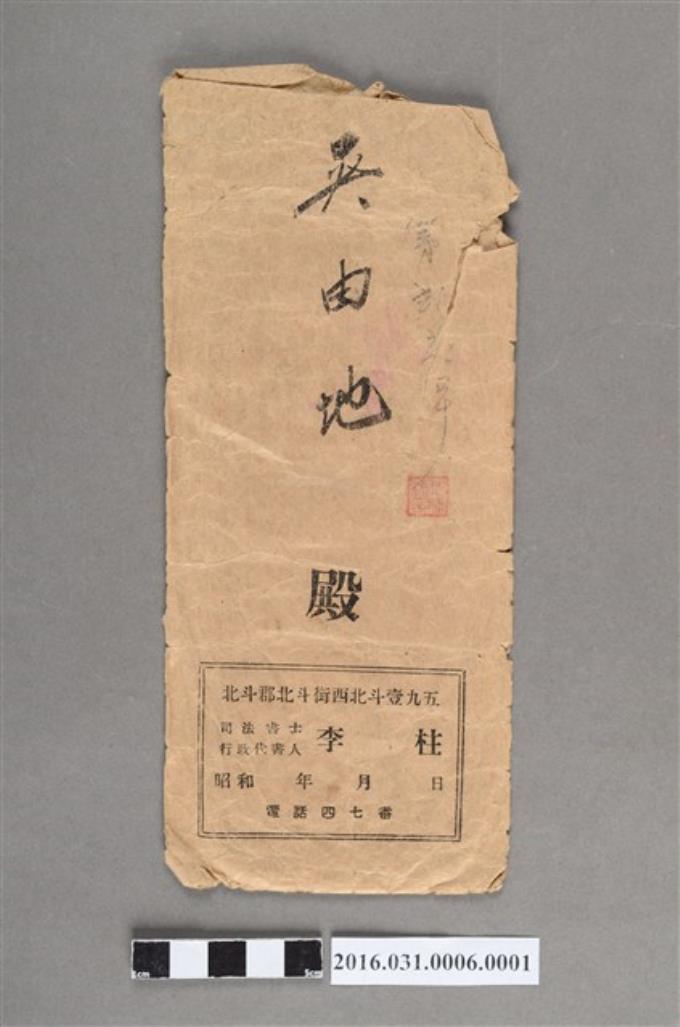 吳由地
殿
北斗郡北斗街西北斗壹九五
司法書士
行政代書人
李 柱
昭和 年 月 日
電話四七番
5cm
5cm
2016.031.0006.0001